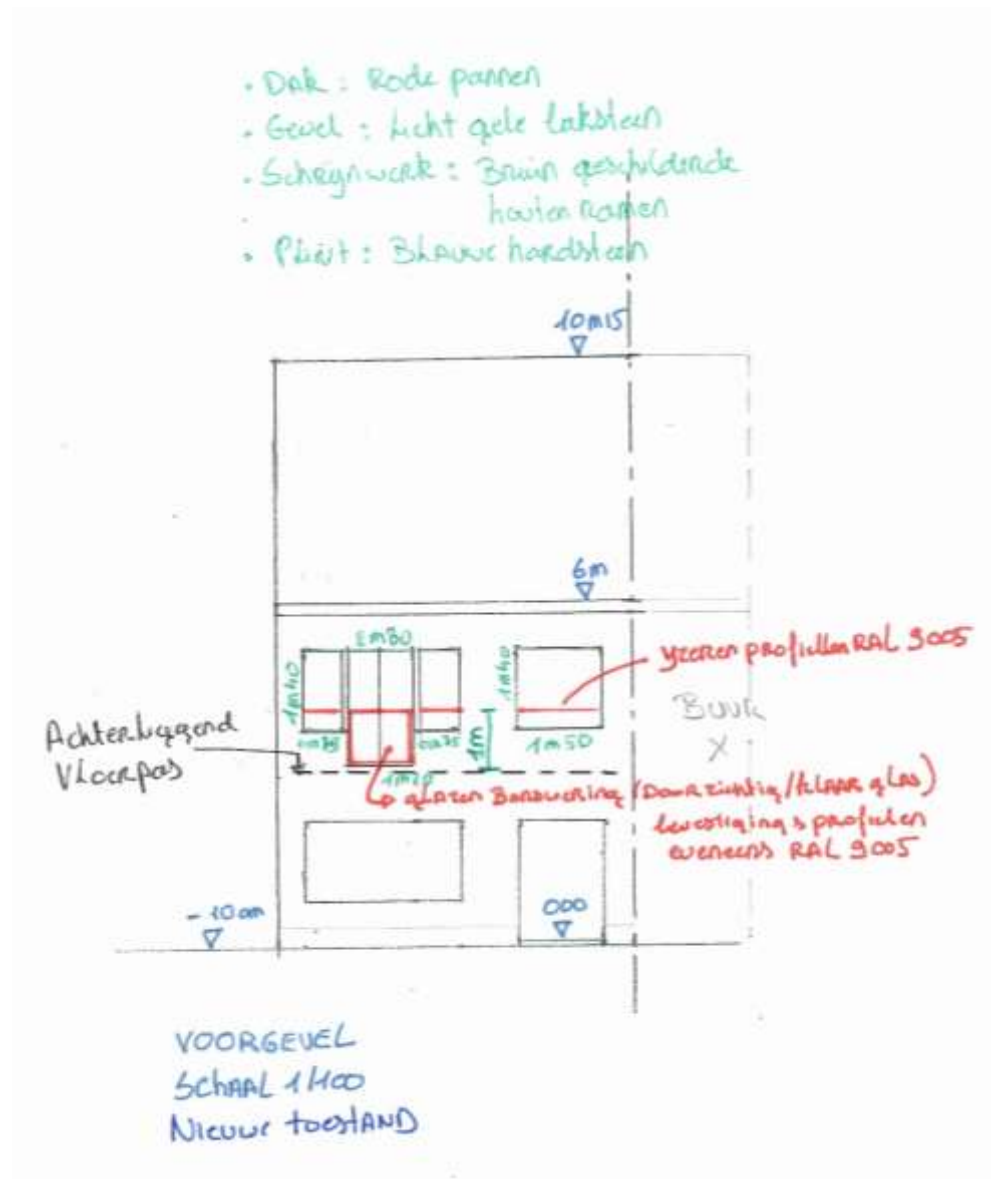 • Dak : Rode pannen
• Gevel : Licht gele baksteen
• Schrijnwerk : Bruin geschilderde
houten ramen
• Plint : Blauwe hardsteen
10m15
6m
2m80
1m40
1m40
ijzeren profielen RAL 9005
Buur
X
Achterliggend
Vloerpas
0m75
0m75
1m
1m50
1m20
glazen Borstwering (Doorzichtig/klaar glas)
bevestigings profielen
eveneens RAL 9005
- 10cm
000
VOORGEVEL
SCHAAL 1/100
Nieuwe toestAND